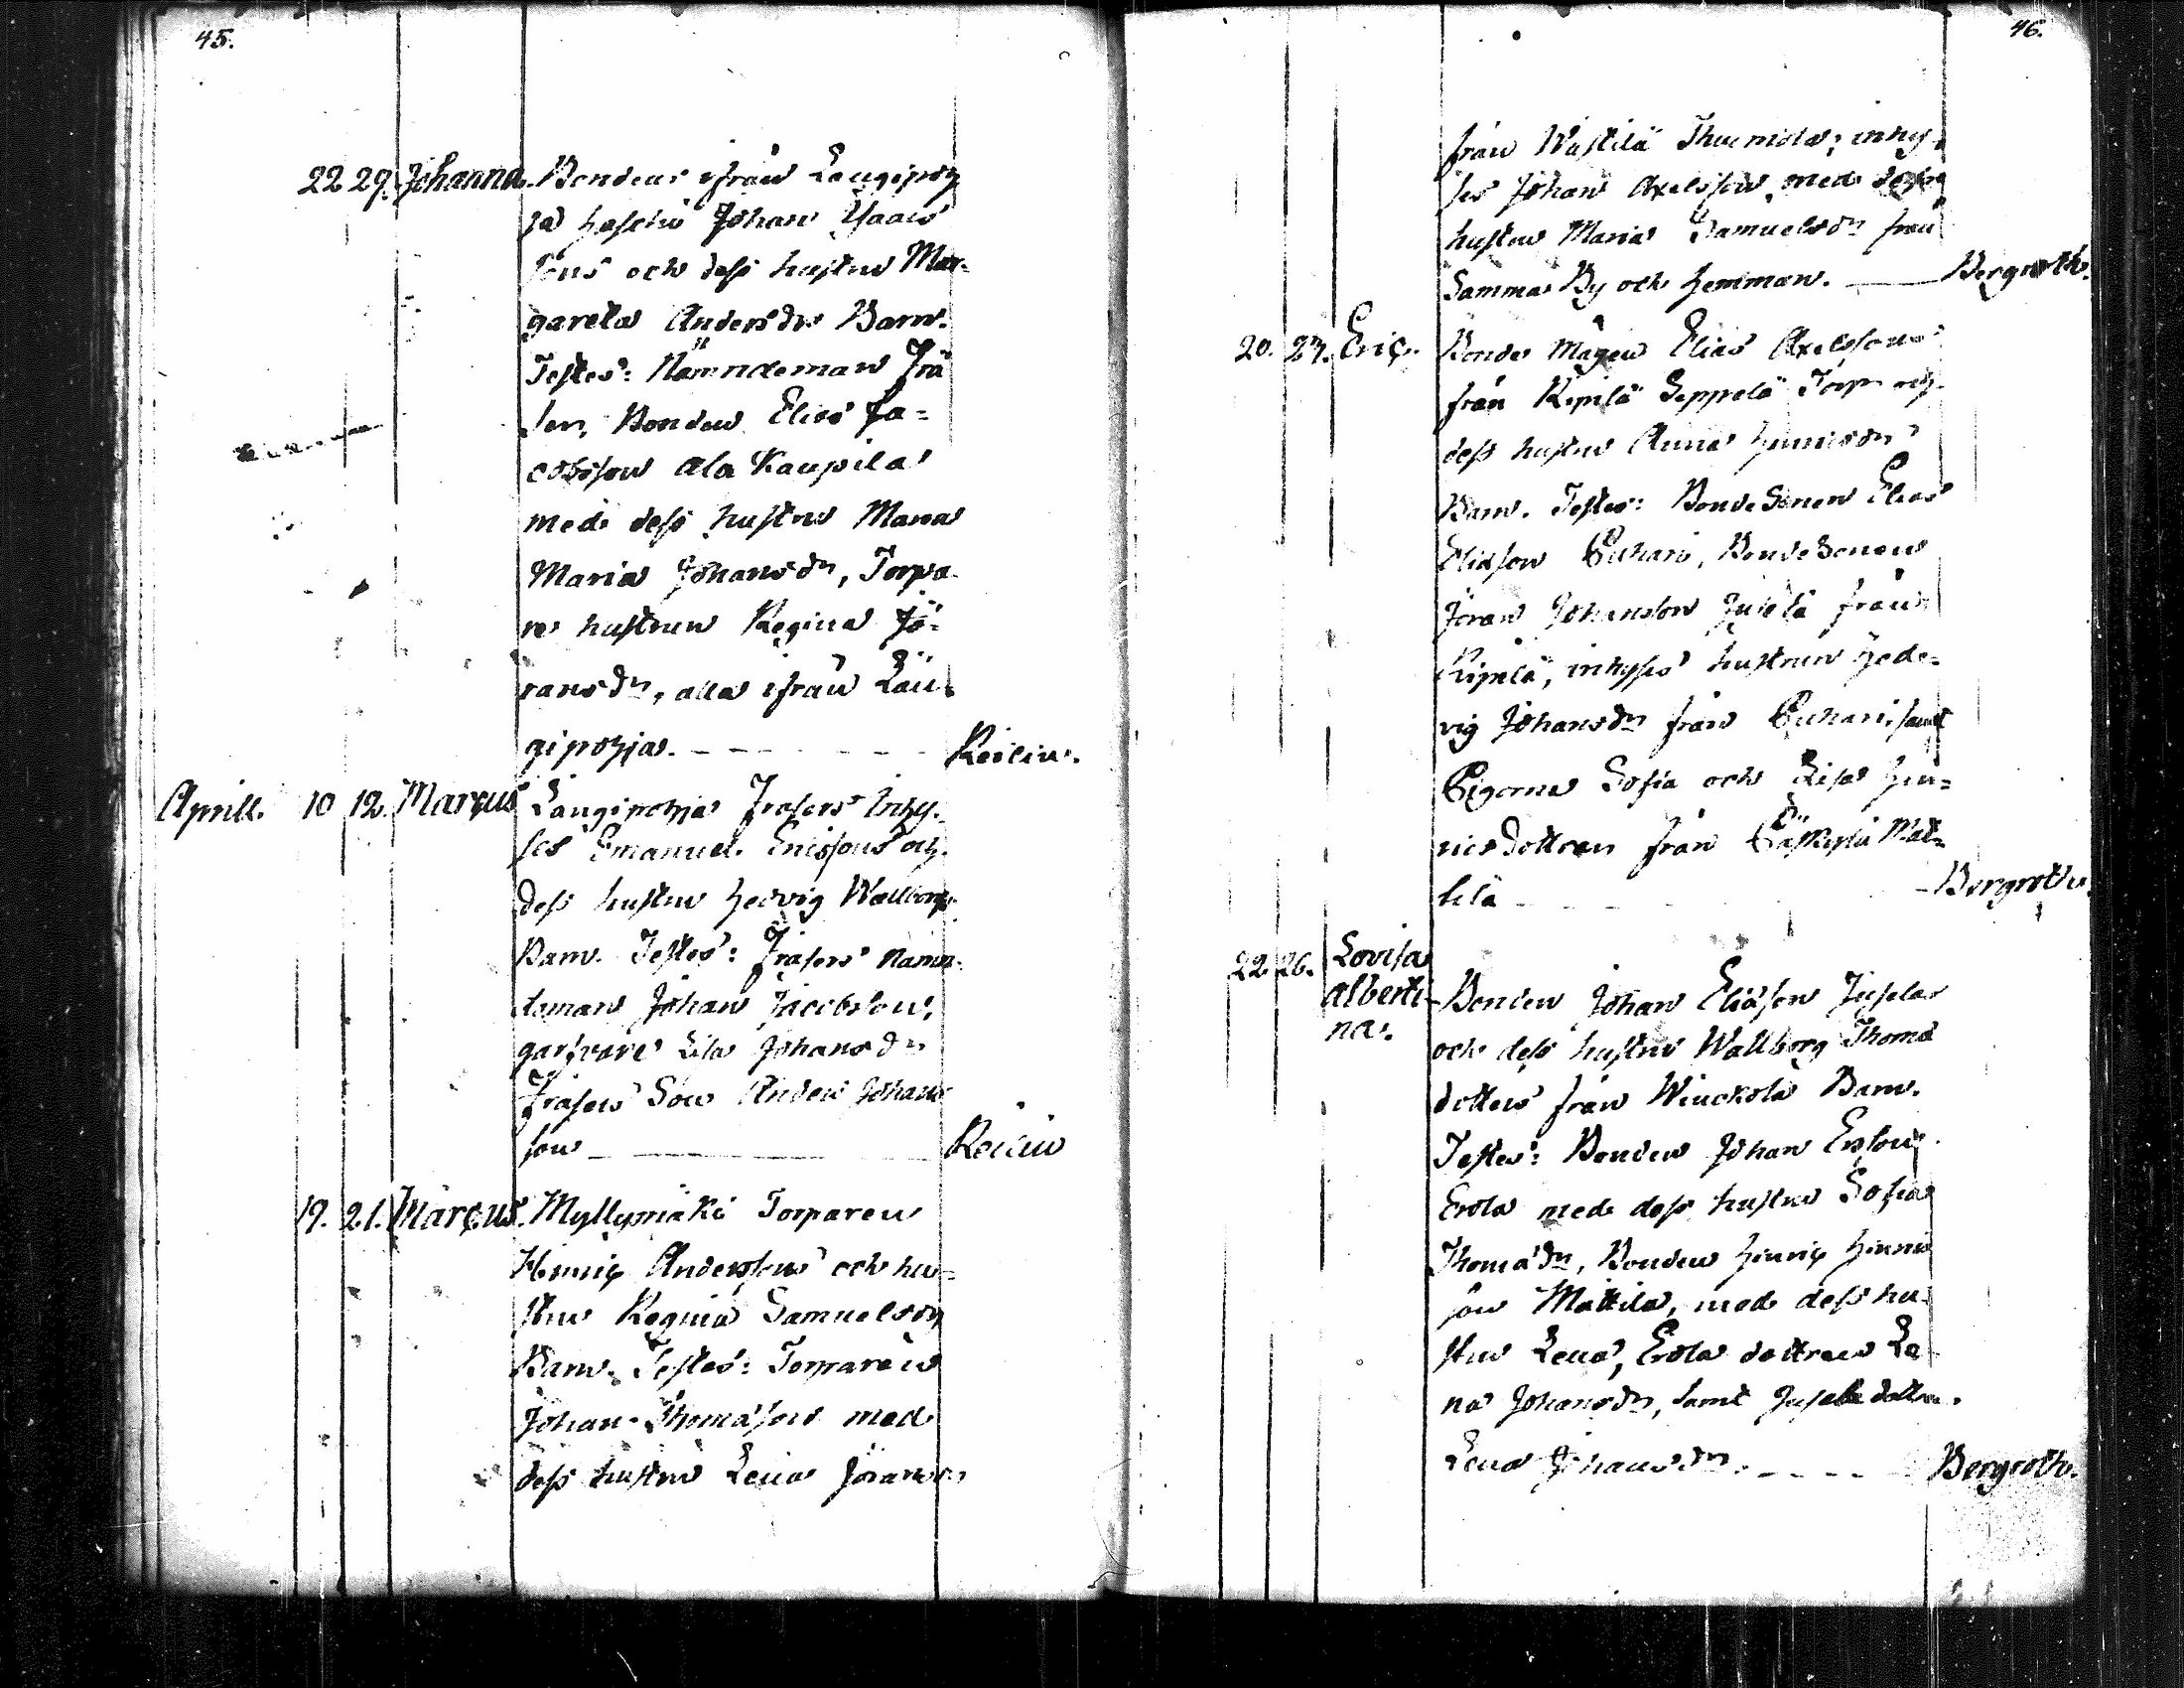 45.
22 29. Johanna. Bondens ifrån Laugipoh
ja Johan Isaacs
sons och dess hustru Mar-
gareta Andersdr Barn.
Testes: Nämndeman Frä
sen, Bonden Elias Ja=
cobsson Ala Kaupila
med dess hustru Maria
Maria Johansdr, Torpa
re hustrun Regina Jö-
ransdr, alla ifrån Lau-
gipohja. Keilin.
Aprill. 10 12. Marcus Laugipohja Frasers Inhy-
ses Emanuel Ericssons och
dess hustru Hedvig Wallborgs
Barn. Testes: Frasers Nämn-
deman Johan Jacobsson,
garfvare Lisa Johansdr
Frasers Son Anders Johans
son Keilin
19. 21. Marcus. Myllymäki Torparen
Hinric Anderssons och hu=
stru Regina Samuelsdr
Barn. Testes: Torparen
Johan Thomasson med
dess hustru Lena Jöransdr
46.
från Wästilä Thuomola, inhy-
ses Johan Axelsson med dess
hustru Maria Samuelsdr från
Samma By och Hemman. Bergroth.
20. 23. Eric. Bonde Mågen Elias Axelssons
från Kipilä Seppelä Torp och
dess hustru Anna Hinricsdr
Barn. Testes: Bonde Sonen Elias
Eliasson Puhari, Bonde Sonen
Jöran Johansson Jusela från
Kipilä, inhyses hustrun Hede-
vig Johansdr från Puhari, samt
Pigorna Sofia och Lisa Hin=
ricsdottrar från Mat-
tila Bergroth.
22. 26. Lovisa
Alberti-
na. Bonden Johan Eliasson Jusela
och dess hustru Wallborg Thomæ
dotters från Winckola Barn.
Testes: Bonden Johan Ersson
Erola med dess hustru Sofia
Thomædr, Bonden Hinric Hinrics
son Mattila, med dess hu-
stru Lena, Erola dottren Le
na Johansdr, samt Jusela dottren
Lena Johansdr. Bergroth.